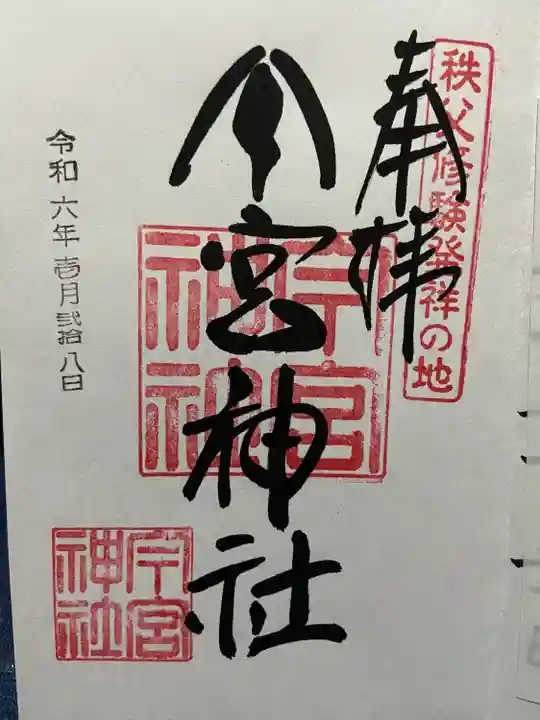 秩父修験発祥の地
奉拝
今宮神社
今宮
神社
令和六年壱月弐拾八日
今宮
神社